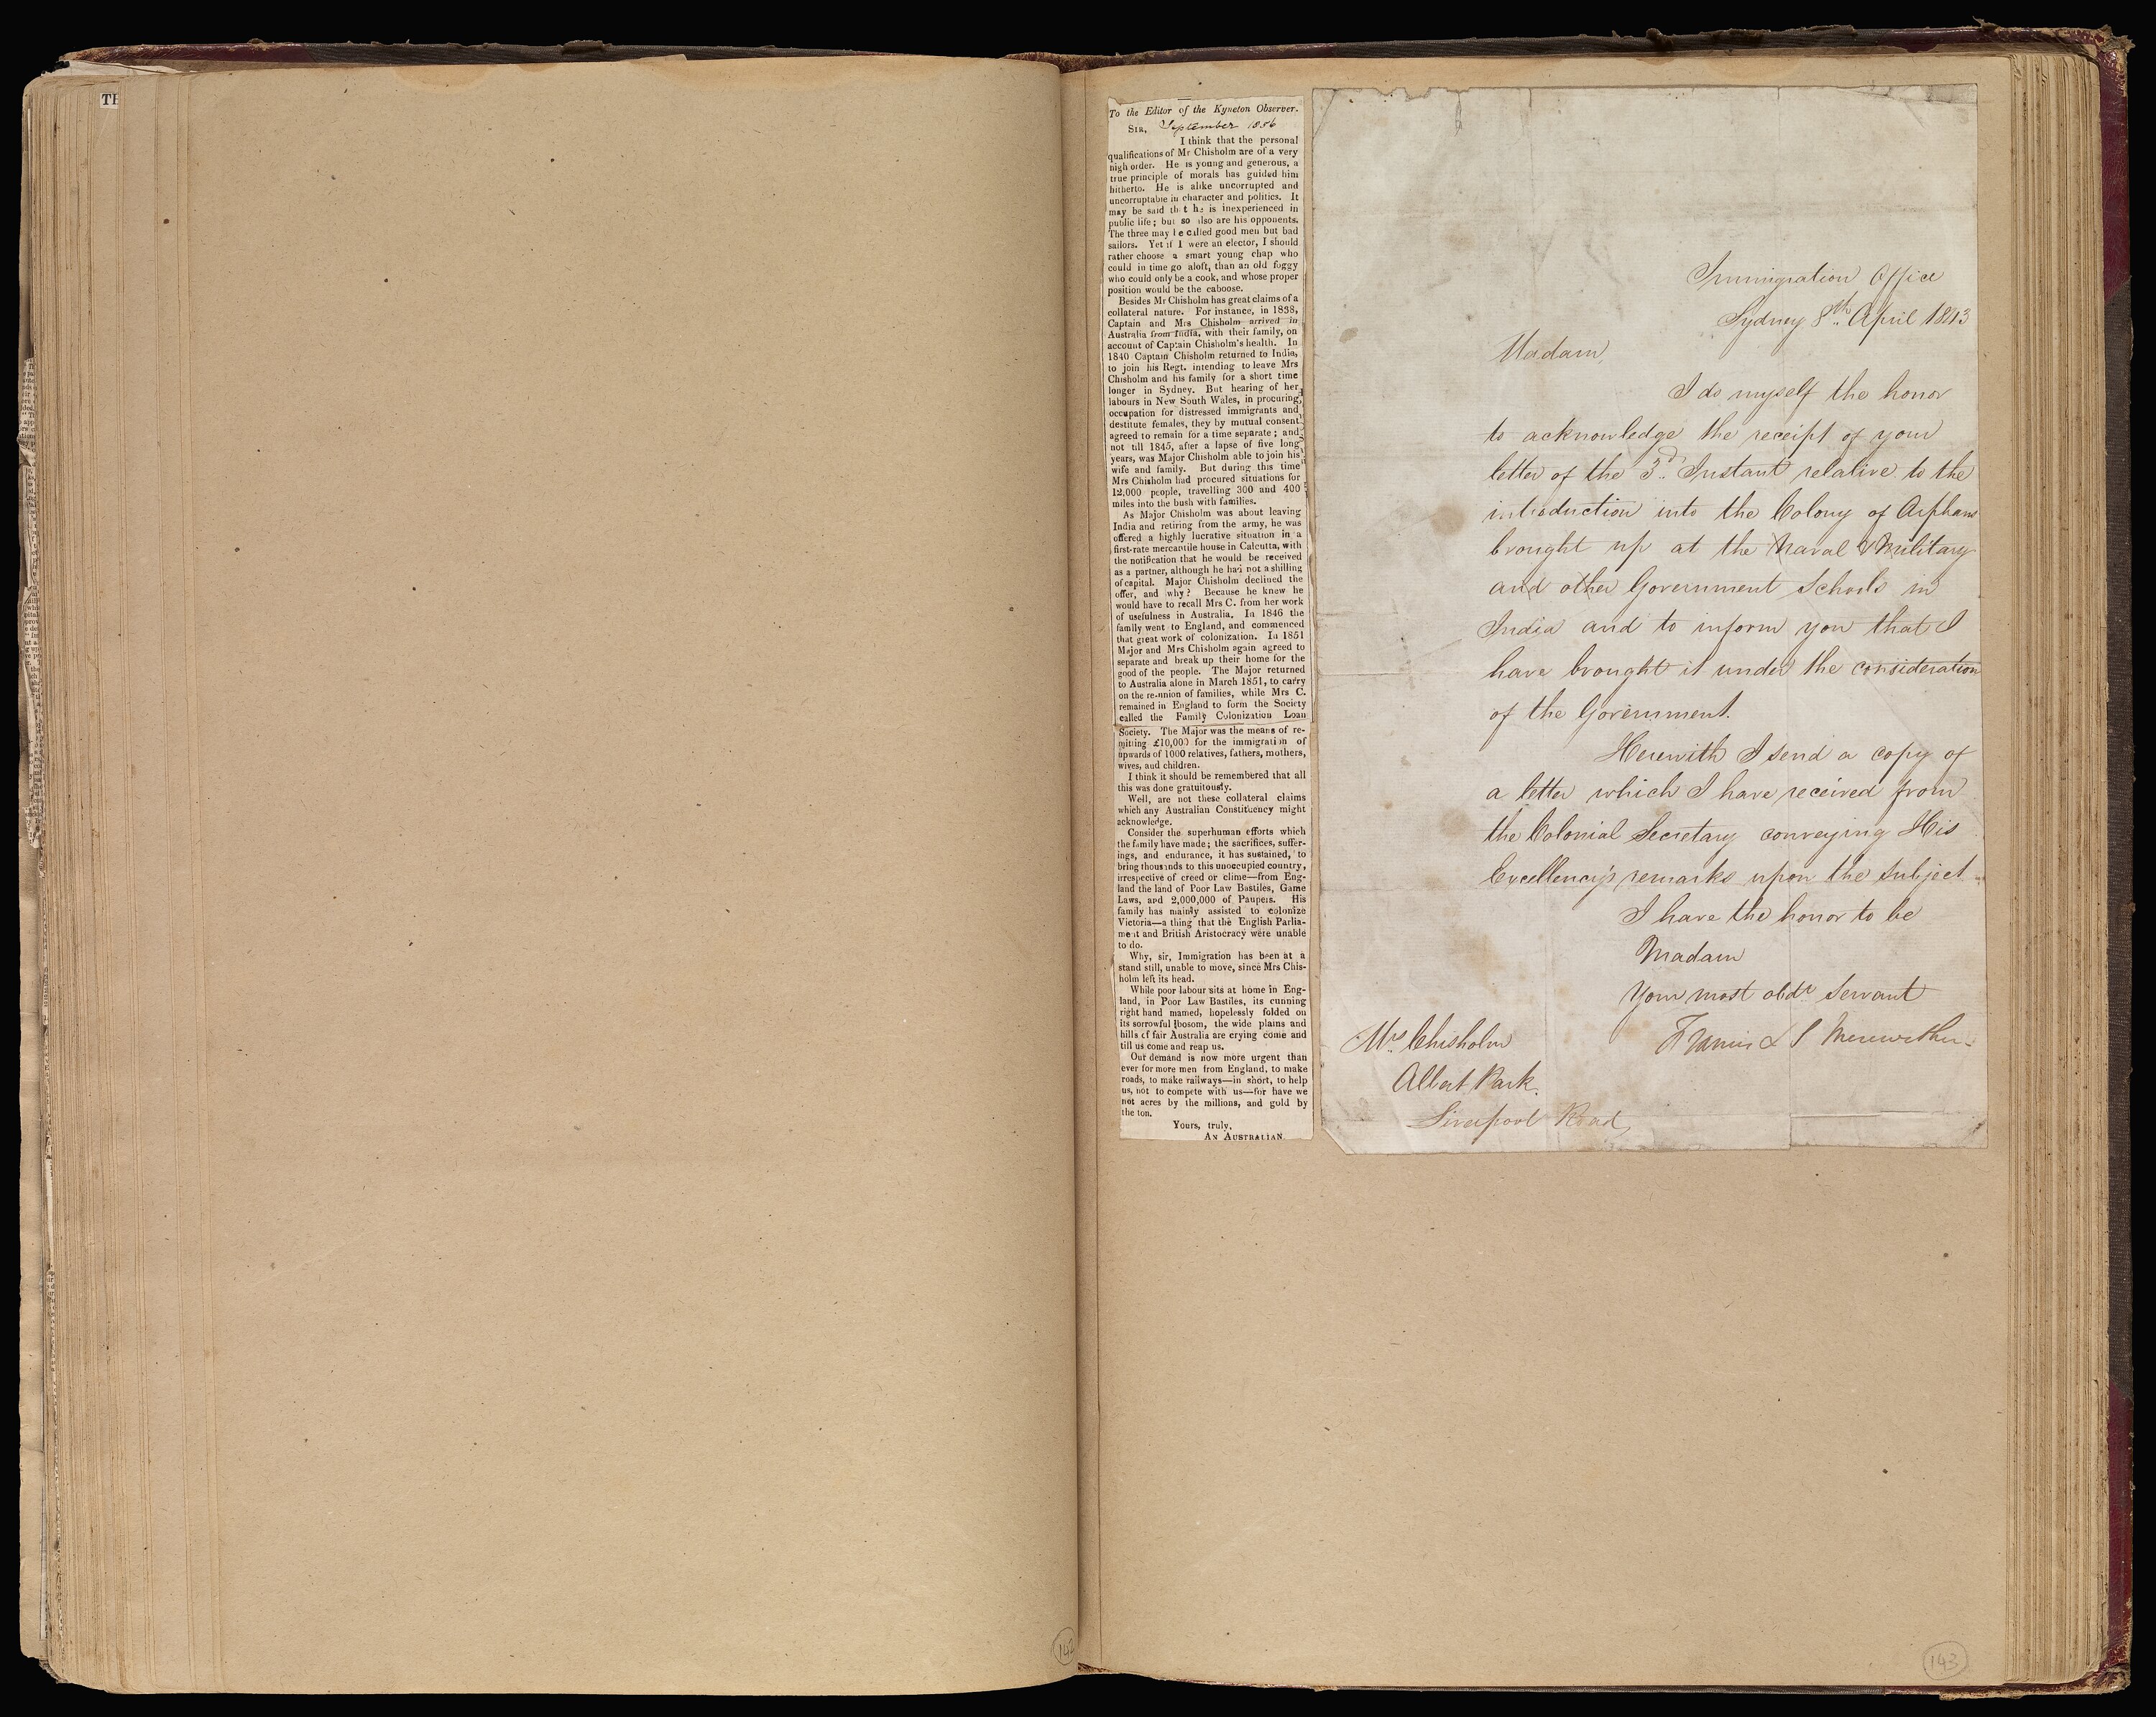 TH
To the Editor of the Kyneton Observer.
SIR, September 1856
I think that the personal
qualifications of Mr Chisholm are of a very
high order. He is young and generous, a
true principle of morals has guided him
hitherto. He is alike uncorrupted and
uncorruptable in character and politics. It
may be said th t he is inexperienced in
public life; but so also are his opponents.
The three may be called good men but bad
sailors. Yet if I were an elector, I should
rather choose a smart young chap who
could in time go aloft, than an old foggy
who could only be a cook, and whose proper
position would be the caboose.
Besides Mr Chisholm has great claims of a
collateral nature. For instance, in 1838,
Captain and Mrs Chisholm arrived in
Australia from India, with their family, on
account of Captain Chisholm's health. In
1840 Captain Chisholm returned to India,
to join his Regt. intending to leave Mrs
Chisholm and his family for a short time
longer in Sydney. But hearing of her
labours in New South Wales, in procuring
occupation for distressed immigrants and
destitute females, they by mutual consent
agreed to remain for a time separate; and
not till 1845, after a lapse of five long
years, was Major Chisholm able to join his
wife and family. But during this time
Mrs Chisholm had procured situations for
12,000 people, travelling 300 and 400
miles into the bush with families.
As Major Chisholm was about leaving
India and retiring from the army, he was
offered a highly lucrative situation in a
first-rate mercantile house in Calcutta, with
the notification that he would be received
as a partner, although he had not a shilling
of capital. Major Chisholm declined the
offer, and why? Because he knew he
would have to recall Mrs C. from her work
of usefulness in Australia. In 1846 the
family went to England, and commenced
that great work of colonization. In 1851
Major and Mrs Chisholm again agreed to
separate and break up their home for the
good of the people. The Major returned
to Australia alone in March 1851, to carry
on the re-union of families, while Mrs C.
remained in England to form the Society
called the Family Colonization Loan
Society. The Major was the means of re-
mitting £10,000 for the immigration of
upwards of 1000 relatives, fathers, mothers,
wives, and children.
I think it should be remembered that all
this was done gratuitously.
Well, are not these collateral claims
which any Australian Constituency might
acknowledge.
Consider the superhuman efforts which
the family have made; the sacrifices, suffer-
ings, and endurance, it has sustained, to
bring thousands to this unoccupied country,
irrespective of creed or clime—from Eng-
land the land of Poor Law Bastiles, Game
Laws, and 2,000,000 of Paupers. His
family has mainly assisted to colonize
Victoria—a thing that the English Parlia-
ment and British Aristocracy were unable
to do.
Why, sir, Immigration has been at a
stand still, unable to move, since Mrs Chis-
holm left its head.
While poor labour sits at home in Eng-
land, in Poor Law Bastiles, its cunning
right hand mamed, hopelessly folded on
its sorrowful bosom, the wide plains and
hills of fair Australia are crying come and
till us come and reap us.
Our demand is now more urgent than
ever for more men from England, to make
roads, to make railways—in short, to help
us, not to compete with us—for have we
not acres by the millions, and gold by
the ton.
Yours, truly,
AN AUSTRALIAN
Immigration Office
Sydney 8th April 1843
Madam,
I do myself the honor
to acknowledge the receipt of your
letter of the 3d Instant relative to the
introduction into the Colony of Orphans
brought up at the Naval & Military
and other Government Schools in
India and to inform you that I
have brought it under the consideration
of the Government.
Herewith I send a copy of
a letter which I have received from
the Colonial Secretary conveying His
Excellency's remarks upon the subject.
I have the honor to be
Madam
Your most obdt Servant
Francis L S Merewether
Mrs Chisholm
Albert Park
Liverpool Road
142
143